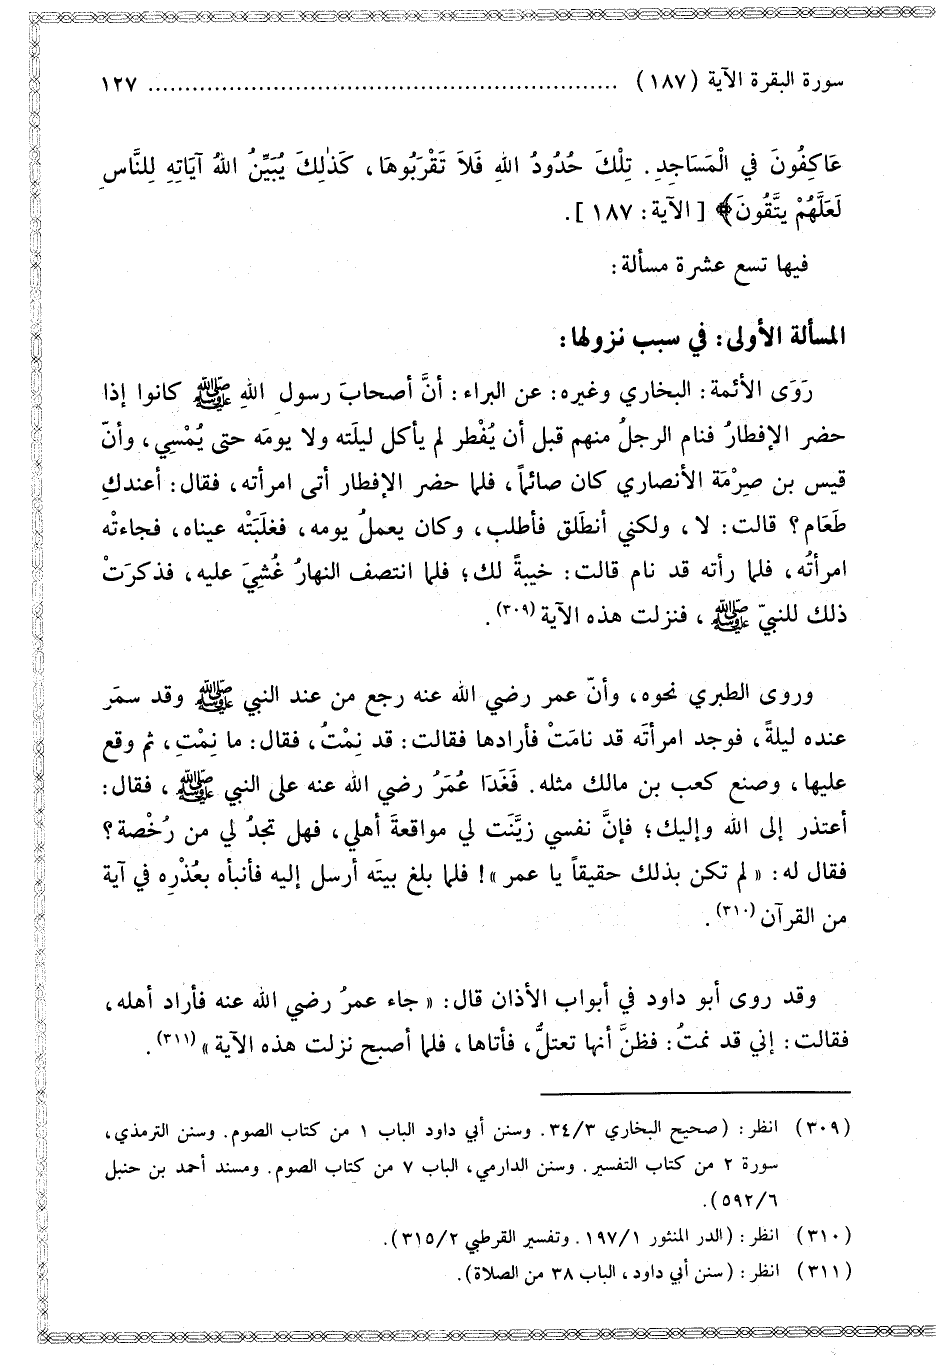 سورة البقرة الآية (١٨٧) ................................................................ ١٢٧
عَاكِفُونَ في الْمَسَاجِدِ. تِلْكَ حُدُودُ اللهِ فَلاَ تَقْرَبُوهَا، كَذٰلِكَ يُبَيِّنُ اللهُ آيَاتِهِ لِلنَّاسِ
لَعَلَّهُمْ يتَّقُونَ﴾ [الآية: ١٨٧].
فيها تسع عشرة مسألة:
المسألة الأولى: في سبب نزولها:
رَوَى الأئمة: البخاري وغيره: عن البراء: أنَّ أصحابَ رسول اللهِ ﷺ كانوا إذا
حضر الإفطارُ فنام الرجلُ منهم قبل أن يُفْطر لم يأكل ليلَته ولا يومَه حتى يُمْسِي، وأنّ
قيس بن صِرْمَة الأنصاري كان صائماً، فلما حضر الإفطار أتى امرأته، فقال: أعندكِ
طَعَام؟ قالت: لا، ولكني أنطَلق فأطلب، وكان يعملُ يومه، فغلَبَتْه عيناه، فجاءتْه
امرأتُه، فلما رأته قد نام قالت: خيبةً لك؛ فلما انتصف النهارُ غُشِيَ عليه، فذكرَتْ
ذلك للنبيّ ﷺ، فنزلت هذه الآية (٣٠٩).
وروى الطبري نحوه، وأنّ عمر رضي الله عنه رجع من عند النبي ﷺ وقد سمَر
عنده ليلةً، فوجد امرأتَه قد نامَتْ فأرادها فقالت: قد نِمْتُ، فقال: ما نِمْتِ، ثم وقع
عليها، وصنع كعب بن مالك مثله. فَغَدَا عُمَرُ رضي الله عنه على النبي ﷺ، فقال:
أعتذر إلى الله وإليك؛ فإنَّ نفسي زيَّنَت لي مواقعةَ أهلي، فهل تجدُ لي من رُخْصة؟
فقال له: «لم تكن بذلك حقيقاً يا عمر»! فلما بلغ بيتَه أرسل إليه فأنبأه بعُذْرِه في آية
من القرآن (٣١٠).
وقد روى أبو داود في أبواب الأذان قال: «جاء عمرُ رضي الله عنه فأراد أهله،
فقالت: إني قد نمتُ: فظنَّ أنها تعتلُّ، فأتاها، فلما أصبح نزلت هذه الآية» (٣١١).
(٣٠٩) انظر: (صحيح البخاري ٣٤/٣. وسنن أبي داود الباب ١ من كتاب الصوم. وسنن الترمذي،
سورة ٢ من كتاب التفسير. وسنن الدارمي، الباب ٧ من كتاب الصوم. ومسند أحمد بن حنبل
٥٩٢/٦).
(٣١٠) انظر: (الدر المنثور ١٩٧/١. وتفسير القرطبي ٣١٥/٢).
(٣١١) انظر: (سنن أبي داود، الباب ٣٨ من الصلاة).